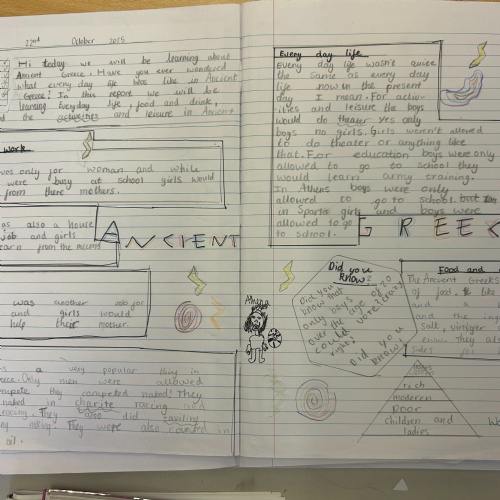 22nd October 2015
Hi today we will be learning about
Ancient Greece. Have you ever wondered
what every day life was like in Ancient
Greece! In this report we will be
learning Everyday life, food and drink,
and the activities and leisure in Ancient
work
was only for woman and while
were a busy at school girls would
from there mothers.
as also a house
job and girls
learn from the
was another job for
and girls would
help their mother.
a very popular thing in
Only men were allowed
compete they competed naked! They
naked in charite racing and
racing. They also did
They were also covered in
oil.
ANCIENT
GREEC
Every day life
Every day life wasn't quiee
the same as every day
life now in the present
day I mean. For activ-
ities and leisure the boys
would do theater yes only
boys no girls. Girls weren't allowed
to do theater or anything like
that. For education boys were only
allowed to go to school they
would learn army training.
In Athens boys were only
allowed to go to school but
in Sparta girls and boys were
allowed to go
to school.
Did you
know?
Did you
know that
only boys
over the age of 20
could vote
right?
Did you
know!
Food and
The Ancient Greeks
of food. & like
and
and the ing
salt, viniger
Sides for
rich
moderen
poor
children and
ladies